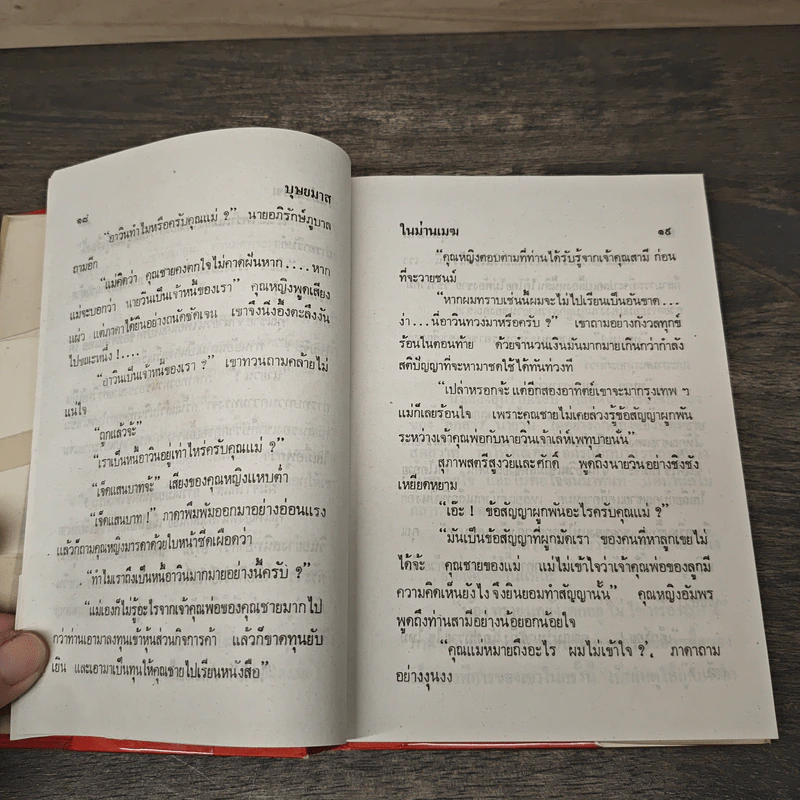 ๑๘
บุษยมาส
“อาวินทำไมหรือครับคุณแม่ ?” นายอภิรักษ์ภูบาล
ถามอีก
“แม่คิดว่า คุณชายคงตกใจไม่คาดฝันหาก....หาก
แม่จะบอกว่า นายวินเป็นเจ้าหนี้ของเรา” คุณหญิงพูดเสียง
แผ่ว แต่ภาคาได้ยินอย่างถนัดชัดเจน เขาจึงนิ่งอึ้งตะลึงงัน
ไปขณะหนึ่ง !....
“อาวินเป็นเจ้าหนี้ของเรา ?” เขาทวนถามคล้ายไม่
แน่ใจ
“ถูกแล้วจ้ะ”
“เราเป็นหนี้อาวินอยู่เท่าไหร่ครับคุณแม่ ?”
“เจ็ดแสนบาทจ้ะ” เสียงของคุณหญิงแหบต่ำ
“เจ็ดแสนบาท !” ภาคาพึมพัมออกมาอย่างอ่อนแรง
แล้วก็ถามคุณหญิงมารดาด้วยใบหน้าซีดเผือดว่า
“ทำไมเราถึงเป็นหนี้อาวินมากมายอย่างนี้ครับ ?”
“แม่เองก็ไม่รู้อะไรจากเจ้าคุณพ่อของคุณชายมากไป
กว่าท่านเอามาลงทุนเข้าหุ้นส่วนกิจการค้า แล้วก็ขาดทุนยับ
เยิน และเอามาเป็นทุนให้คุณชายไปเรียนหนังสือ”
ในม่านเมฆ
๑๙
“คุณหญิงตอบตามที่ท่านได้รับรู้จากเจ้าคุณสามี ก่อน
ที่จะวายชนม์
“หากผมทราบเช่นนี้ผมจะไม่ไปเรียนเป็นอันขาด...
ง่า... นี่อาวินทวงมาหรือครับ ?” เขาถามอย่างกังวลทุกข์
ร้อนในตอนท้าย ด้วยจำนวนเงินมันมากมายเกินกว่ากำลัง
สติปัญญาที่จะหามาชดใช้ได้ทันท่วงที
“เปล่าหรอกจ้ะ แต่อีกสองอาทิตย์เขาจะมากรุงเทพ ฯ
แม่ก็เลยร้อนใจ เพราะคุณชายไม่เคยล่วงรู้ข้อสัญญาผูกพัน
ระหว่างเจ้าคุณพ่อกับนายวินเจ้าเล่ห์เพทุบายนั่น”
สุภาพสตรีสูงวัยและศักดิ์ พูดถึงนายวินอย่างชิงชัง
เหยียดหยาม
“เอ๊ะ ! ข้อสัญญาผูกพันอะไรครับคุณแม่ ?”
“มันเป็นข้อสัญญาที่ผูกมัดเรา ของคนที่หาลูกเขยไม่
ได้จ้ะ คุณชายของแม่ แม่ไม่เข้าใจว่าเจ้าคุณพ่อของลูกมี
ความคิดเห็นยังไง จึงยินยอมทำสัญญานั้น” คุณหญิงอัมพร
พูดถึงท่านสามีอย่างน้อยอกน้อยใจ
“คุณแม่หมายถึงอะไร ผมไม่เข้าใจ ?” ภาคาถาม
อย่างงุนงง